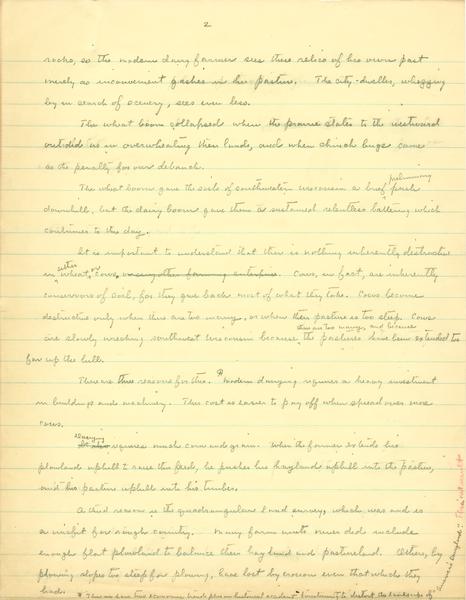 2
rocks, so the modern dairy farmer sees these relics of his own past
merely as inconvenient gashes in his pasture. The city-dweller, whizzing
by in search of scenery, sees even less.
The wheat boom collapsed when the prairie states to the westward
outdid us in overwheating their lands, and when chinch bugs came
as the penalty for our debauch.
preliminary
The wheat boom gave the soils of southwestern Wisconsin a brief push
downhill, but the dairy boom gave them a sustained relentless battering which
continues to this day.
It is important to understand that there is nothing inherently destructive
either or
in wheat, cows, or any other farming enterprise. Cows, in fact, are inherently
conservors of soil, for they give back most of what they take. Cows become
destructive only when there are too many, or when their pasture is too steep. Cows
there are too many, and because
are slowly wrecking southwest Wisconsin because the pastures have been extended too
far up the hill.
There are three reasons for this. Modern dairying requires a heavy investment
in buildings and machinery. This cost is easier to pay off when spread over more
cows.
Dairying
It also requires much corn and grain. When the farmer extends his
plowlands uphill to raise this feed, he pushes his haylands uphill into the pasture,
and his pasture uphill into his timber.
A third reason is the quadrangular land survey, which was and is
a misfit for rough country. Many farm units never did include
enough flat plowland to balance their hayland and pastureland. Others, by
plowing slopes too steep for plowing, have lost by erosion even that which they
had.
* Thus we have two economic trends plus an historical accident